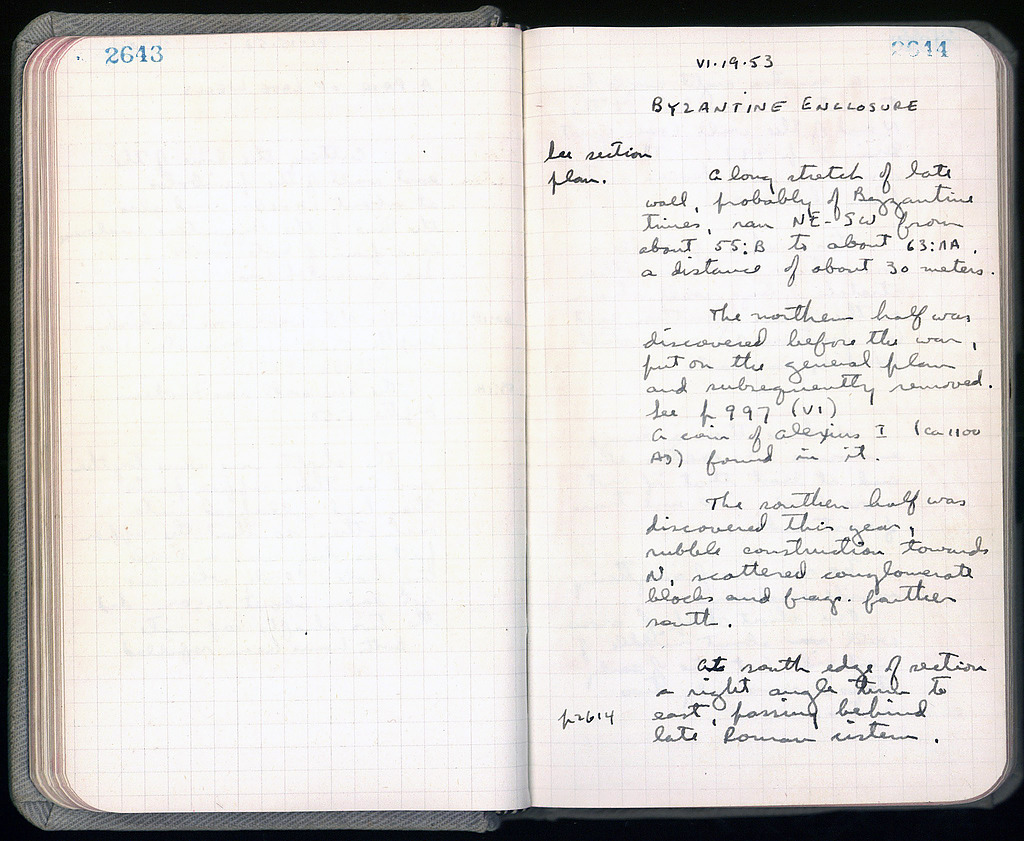 2643
2644
VI.19.53
BYZANTINE ENCLOSURE
See section
plan.
A long stretch of late
wall, probably of Byzantine
times, ran NE-SW from
about 55:B to about 63:AA,
a distance of about 30 meters.
The northern half was
discovered before the war,
put on the general plan
and subsequently removed.
See p 997 (VI)
A coin of Alexius I (ca 1100
AD) found in it.
The southern half was
discovered this year,
rubble construction towards
N, scattered conglomerate
blocks and frags. farther
south.
At south edge of section
a right angle turn to
p 2614
east, passing behind
late Roman cistern.